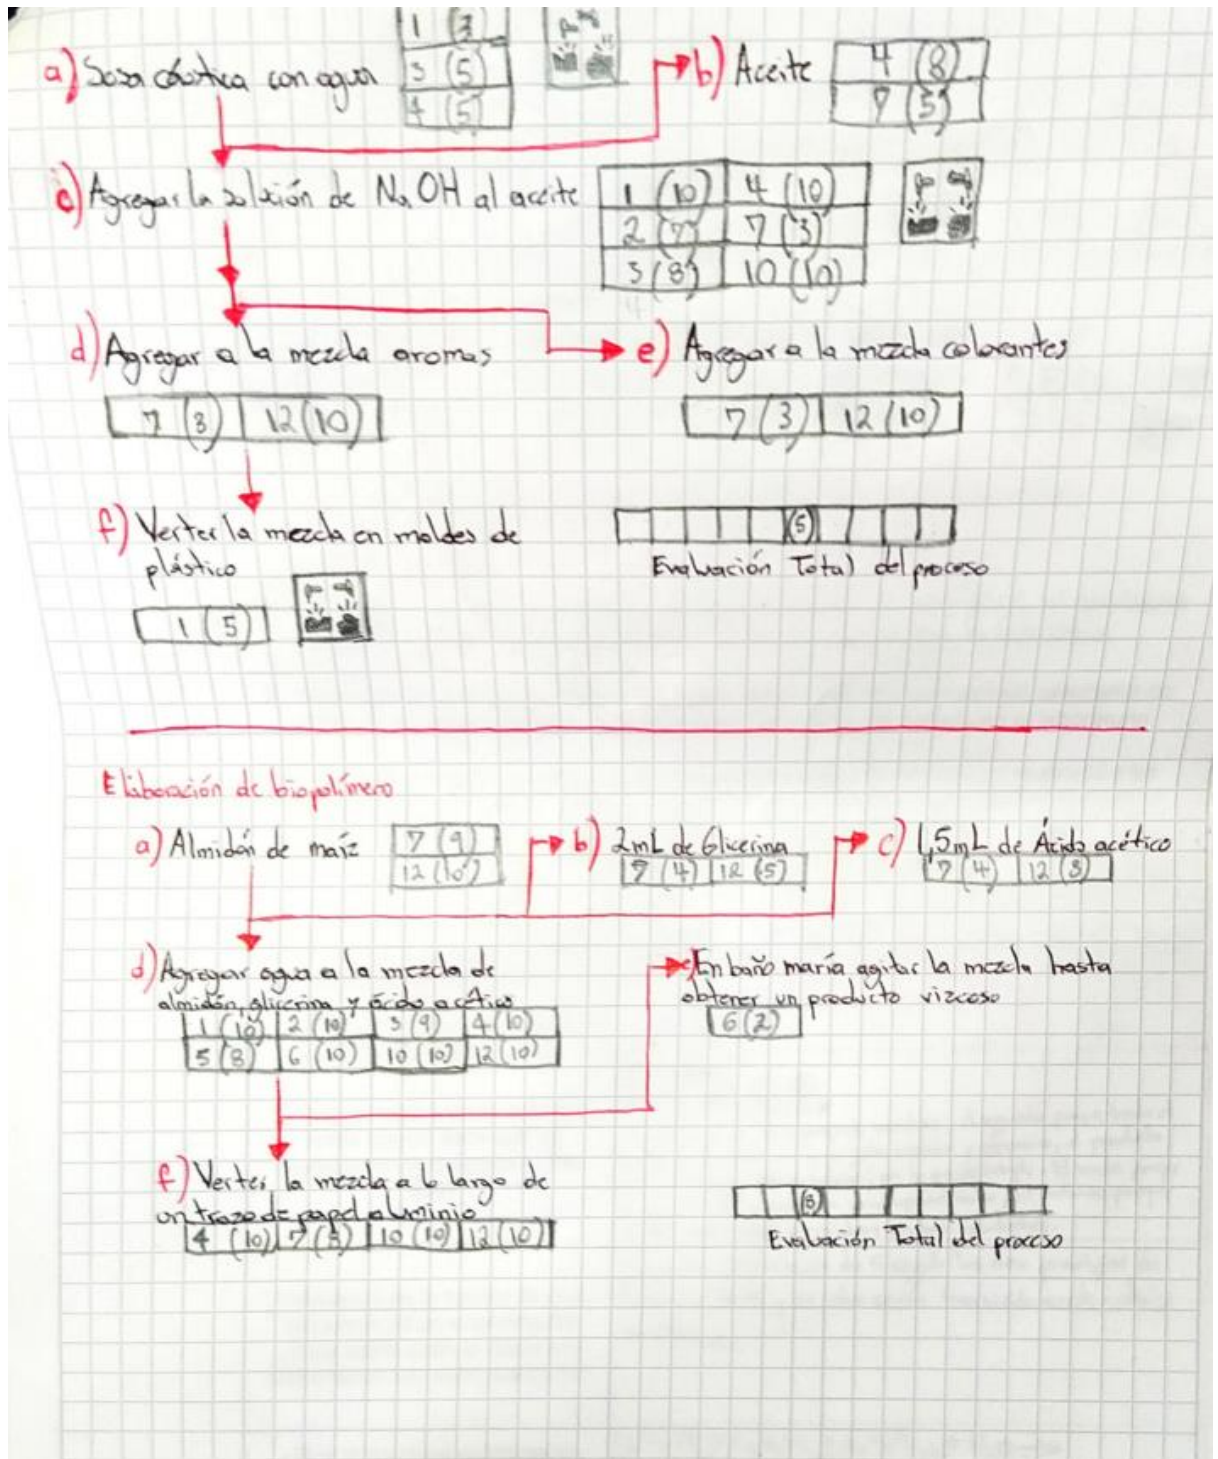 a) Sosa cáustica con agua
1 (3)
3 (5)
4 (5)
b) Aceite
4 (8)
7 (5)
c) Agregar la solución de NaOH al aceite
1 (10) 4 (10)
2 (7) 7 (3)
3 (8) 10 (10)
d) Agregar a la mezcla aromas
7 (3) 12 (10)
e) Agregar a la mezcla colorantes
7 (3) 12 (10)
f) Verter la mezcla en moldes de
plástico
1 (5)
(5)
Evaluación Total del proceso
Elaboración de biopolímero
a) Almidón de maíz
7 (9)
12 (10)
b) 2mL de Glicerina
7 (4) 12 (5)
c) 1,5mL de Ácido acético
7 (4) 12 (3)
d) Agregar agua a la mezcla de
almidón, glicerina y ácido acético
1 (10) 2 (10) 3 (9) 4 (10)
5 (8) 6 (10) 10 (10) 12 (10)
En baño maría agitar la mezcla hasta
obtener un producto vizcoso
6 (2)
f) Verter la mezcla a lo largo de
un trazo de papel aluminio
4 (10) 7 (3) 10 (10) 12 (10)
(8)
Evaluación Total del proceso